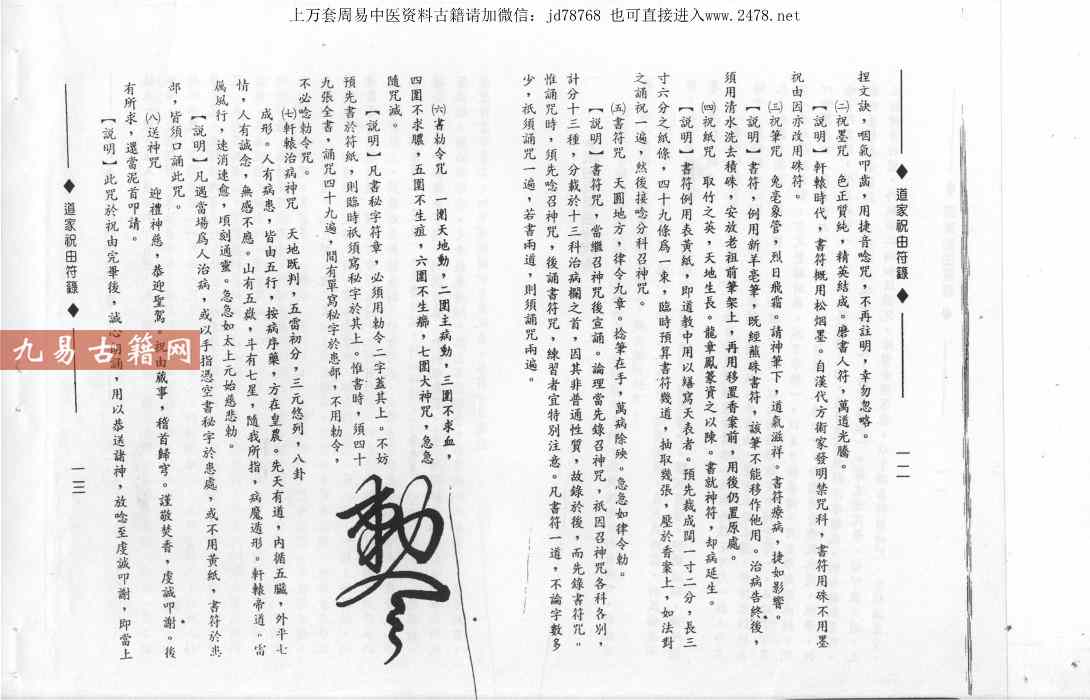 上万套周易中医资料古籍请加微信：jd78768 也可直接进入www.2478.net
◆ 道家祝由符籙 ◆
一二
捏文訣，咽氣叩齒，用捷音唸咒，不再註明，幸勿忽略。
㈡祝墨咒　色正質純，精英結成。磨書人符，萬道光騰。
【說明】軒轅時代，書符概用松烟墨。自漢代方術家發明禁咒科，書符用硃不用墨
祝由因亦改用硃符。
㈢祝筆咒　兔毫象管，烈日飛霜。請神筆下，道氣滋祥。書符療病，捷如影響。
【說明】書符，例用新羊亳筆，既經蘸硃書符，該筆不能移作他用。治病告終後，
須用清水洗去積硃，安放老祖前筆架上，再用移置香案前，用後仍置原處。
㈣祝紙咒　取竹之英，天地生長。龍章鳳篆資之以陳。書就神符，却病延生。
【說明】書符例用表黃紙，即道教中用以繕寫天表者。預先裁成闊一寸二分，長三
寸六分之紙條，四十九條爲一束，臨時預算書符幾道，抽取幾張，壓於香案上，如法對
之誦祝一遍，然後接唸分科召神咒。
㈤書符咒　天圓地方，律令九章。捻筆在手，萬病除殃。急急如律令勅。
【說明】書符咒，當繼召神咒後宣誦。論理當先錄召神咒，祇因召神咒各科各別，
計分十三種，分載於十三科治病欄之首，因其非普通性質，故錄於後，而先錄書符咒。
惟誦咒時，須先唸召神咒，後誦書符咒，練習者宜特別注意。凡書符一道，不論字數多
少，祇須誦咒一遍，若書兩道，則須誦咒兩遍。
㈥書勅令咒　一圍天地動，二圍主病動，三圍不求血，
四圍不求膿，五圍不生疽，六圍不生癤，七圍大神咒，急急
隨咒滅。
【說明】凡書秘字符章，必須用勅令二字蓋其上。不妨
預先書於符紙，則臨時祇須寫秘字於其上。惟書時，須四十
九張全書，誦咒四十九遍，間有單寫秘字於患部，不用勅令，
不必唸勅令咒。
勅令
㈦軒轅治病神咒　天地既判，五雷初分，三元悠列，八卦
成形。人有病患，皆由五行，按病序藥，方在皇農。先天有道，內循五臟，外平七
情，人有誠念，無感不應。山有五嶽，斗有七星，隨我所指，病魔遁形。軒轅帝道。雷
厲風行，速消速愈，頃刻通靈。急急如太上元始慈悲勅。
【說明】凡遇當場爲人治病，或以手指憑空書秘字於患處，或不用黃紙，書符於患
部，皆須口誦此咒。
㈧送神咒　迎禮神慈，恭迎聖駕。祝由蕆事，稽首歸穹。謹敬焚香，虔誠叩謝。後
有所求，還當泥首叩請。
【說明】此咒於祝由完畢後，誠心明誦，用以恭送諸神，放唸至虔誠叩謝，即當上
◆ 道家祝由符籙 ◆
一三
九易古籍网